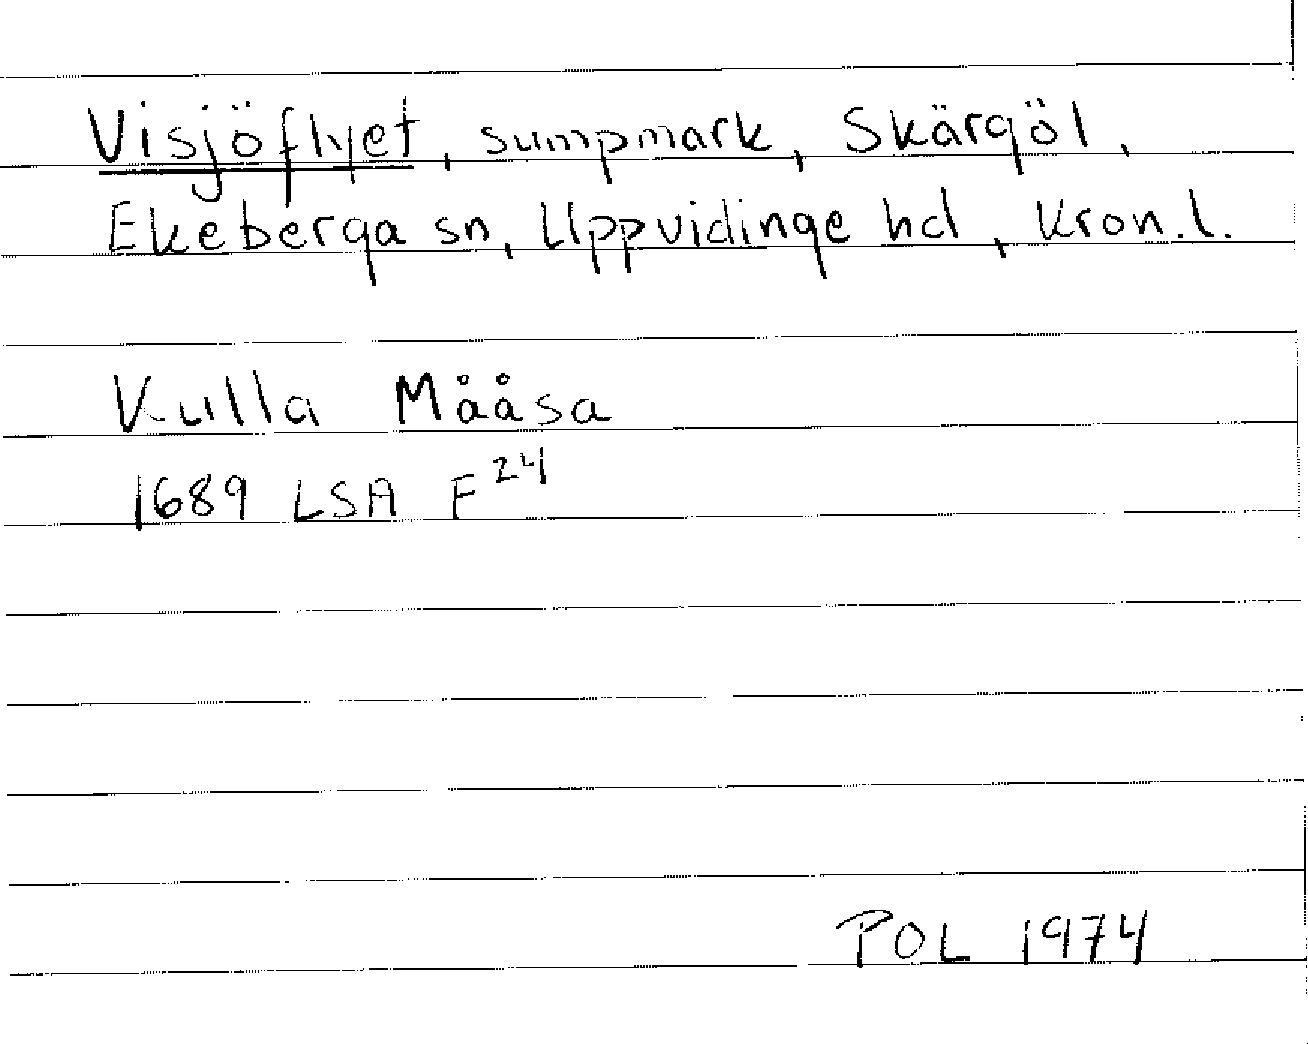 Visjöflyet, sumpmark, Skärgöl,
Ekeberga sn, Uppvidinge hd, Kron.l.
Kulla Mååsa
1689 LSA F24
POL 1974